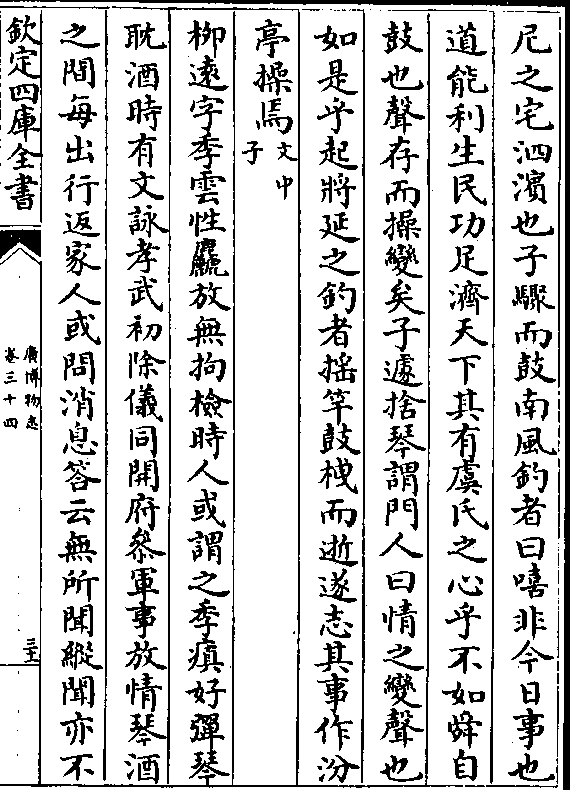 尼之宅泗濱也子驟而鼓南風釣者曰嘻非今日事也
道能利生民功足濟天下其有虞氏之心乎不如舜自
鼓也聲存而操變矣子遽捨琴謂門人曰情之變聲也
如是乎起將延之釣者揺竿鼓栧而逝遂志其事作汾
亭操焉文中子
柳逺字季雲性麤放無拘檢時人或謂之季瘨好彈琴
耽酒時有文詠孝武初除儀同開府叅軍事放情琴酒
之間每出行返家人或問消息答云無所聞縱聞亦不
欽定四庫全書
廣博物志
卷三十四
三十五